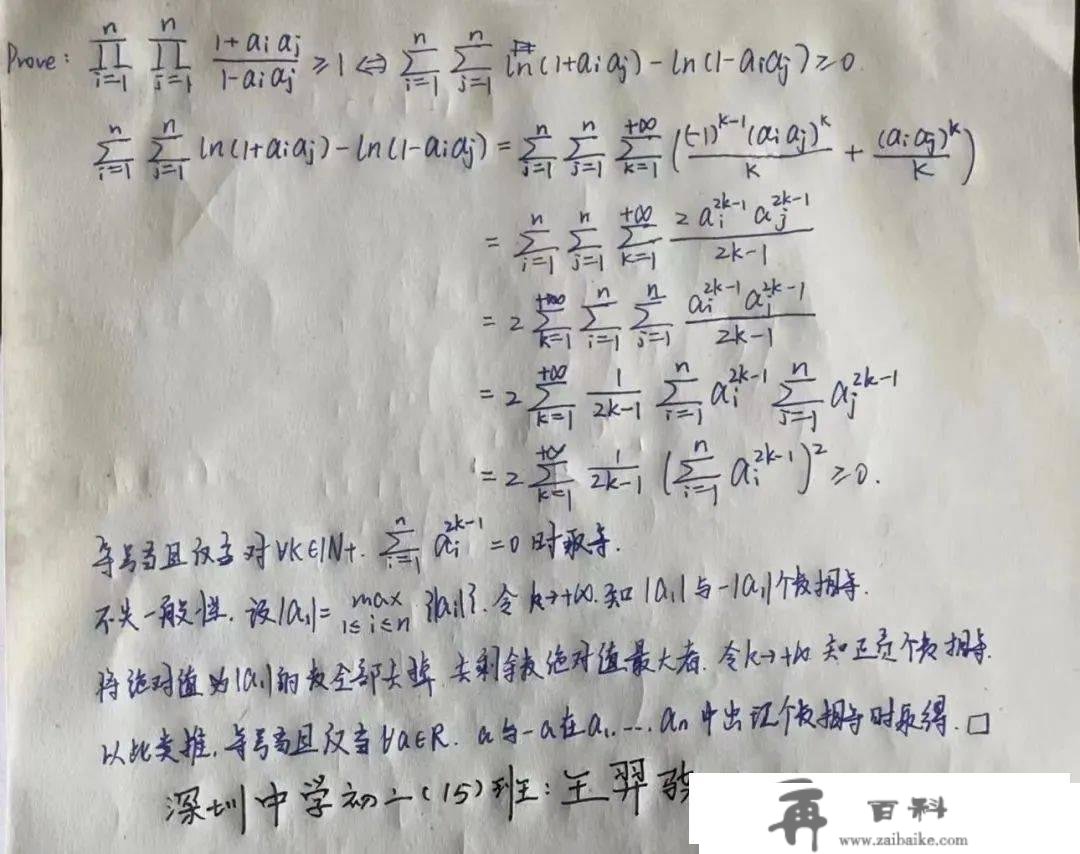 Prove: ∏_{i=1}^{n} ∏_{j=1}^{n} (1+a_i a_j)/(1-a_i a_j) ≥ 1 ⇔ ∑_{i=1}^{n} ∑_{j=1}^{n} ln(1+a_i a_j) - ln(1-a_i a_j) ≥ 0.
∑_{i=1}^{n} ∑_{j=1}^{n} ln(1+a_i a_j) - ln(1-a_i a_j) = ∑_{i=1}^{n} ∑_{j=1}^{n} ∑_{k=1}^{+∞} ((-1)^{k-1}(a_i a_j)^k/k + (a_i a_j)^k/k)
= ∑_{i=1}^{n} ∑_{j=1}^{n} ∑_{k=1}^{+∞} 2 a_i^{2k-1} a_j^{2k-1}/(2k-1)
= 2 ∑_{k=1}^{+∞} ∑_{i=1}^{n} ∑_{j=1}^{n} a_i^{2k-1} a_j^{2k-1}/(2k-1)
= 2 ∑_{k=1}^{+∞} 1/(2k-1) ∑_{i=1}^{n} a_i^{2k-1} ∑_{j=1}^{n} a_j^{2k-1}
= 2 ∑_{k=1}^{+∞} 1/(2k-1) (∑_{i=1}^{n} a_i^{2k-1})^2 ≥ 0.
等号当且仅当对∀k∈N+. ∑_{i=1}^{n} a_i^{2k-1} = 0 时取等.
不失一般性. 设|a_1| = max_{1≤i≤n} {|a_i|}. 令 k→+∞. 知 |a_1| 与 -|a_1| 个数相等.
将绝对值为|a_1|的数全部去掉. 去剩余数绝对值最大者. 令k→+∞ 知正负个数相等.
以此类推. 等号当且仅当∀a∈R. a与-a在a_1,...,a_n中出现个数相等时取得. □
深圳中学初二(15)班: 王羿
再 百科
www.zaibaike.com